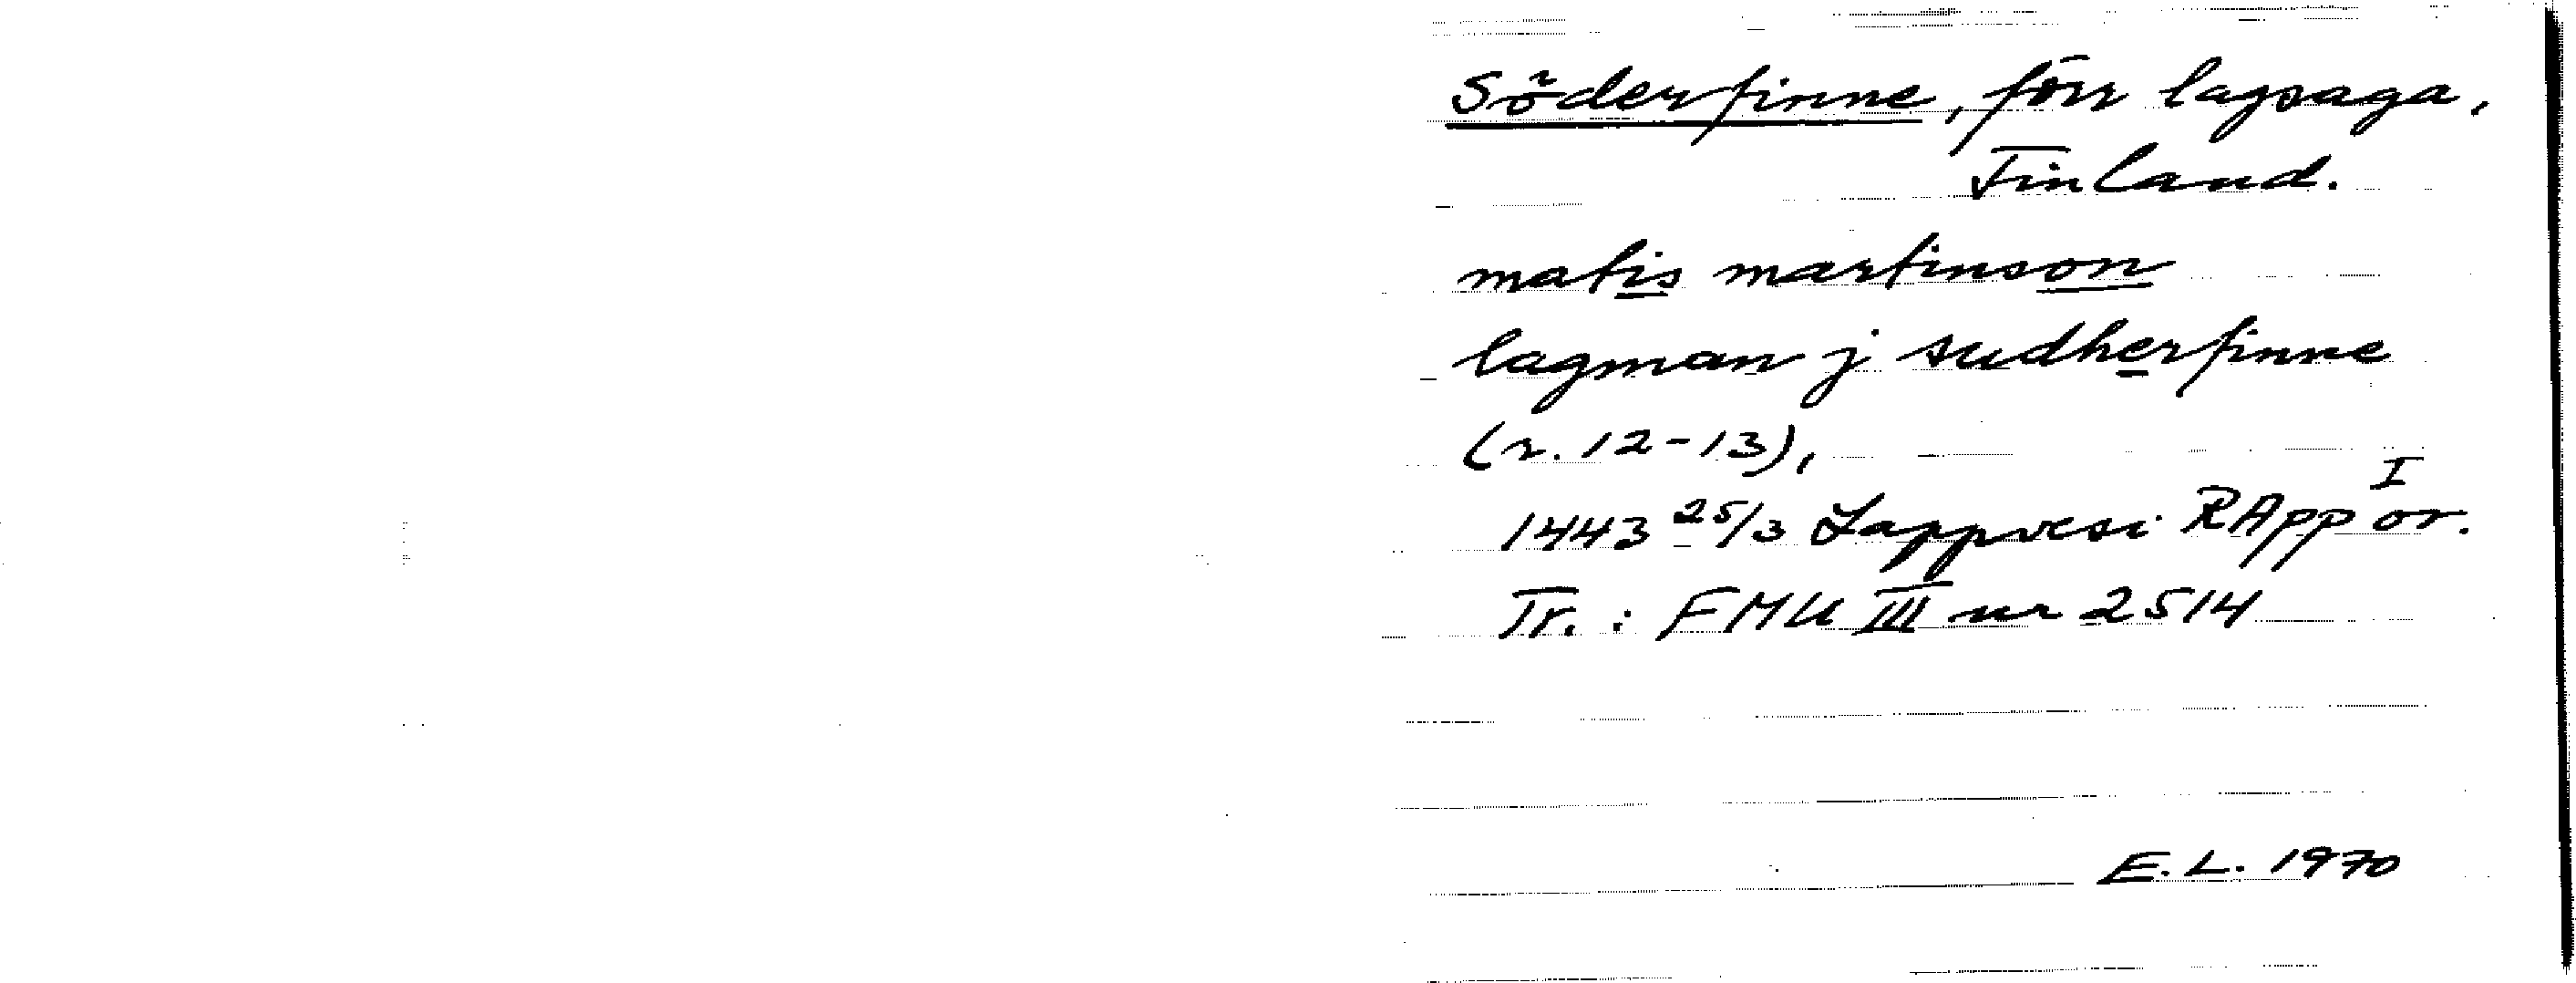 Söderfinne, förr lagsaga,
Finland.
matis martinson
lagman j sudherfinne
(r. 12-13),
1443 25/3 Lappvesi RApp I or.
Tr. : FMU III nr 2514
E.L. 1970